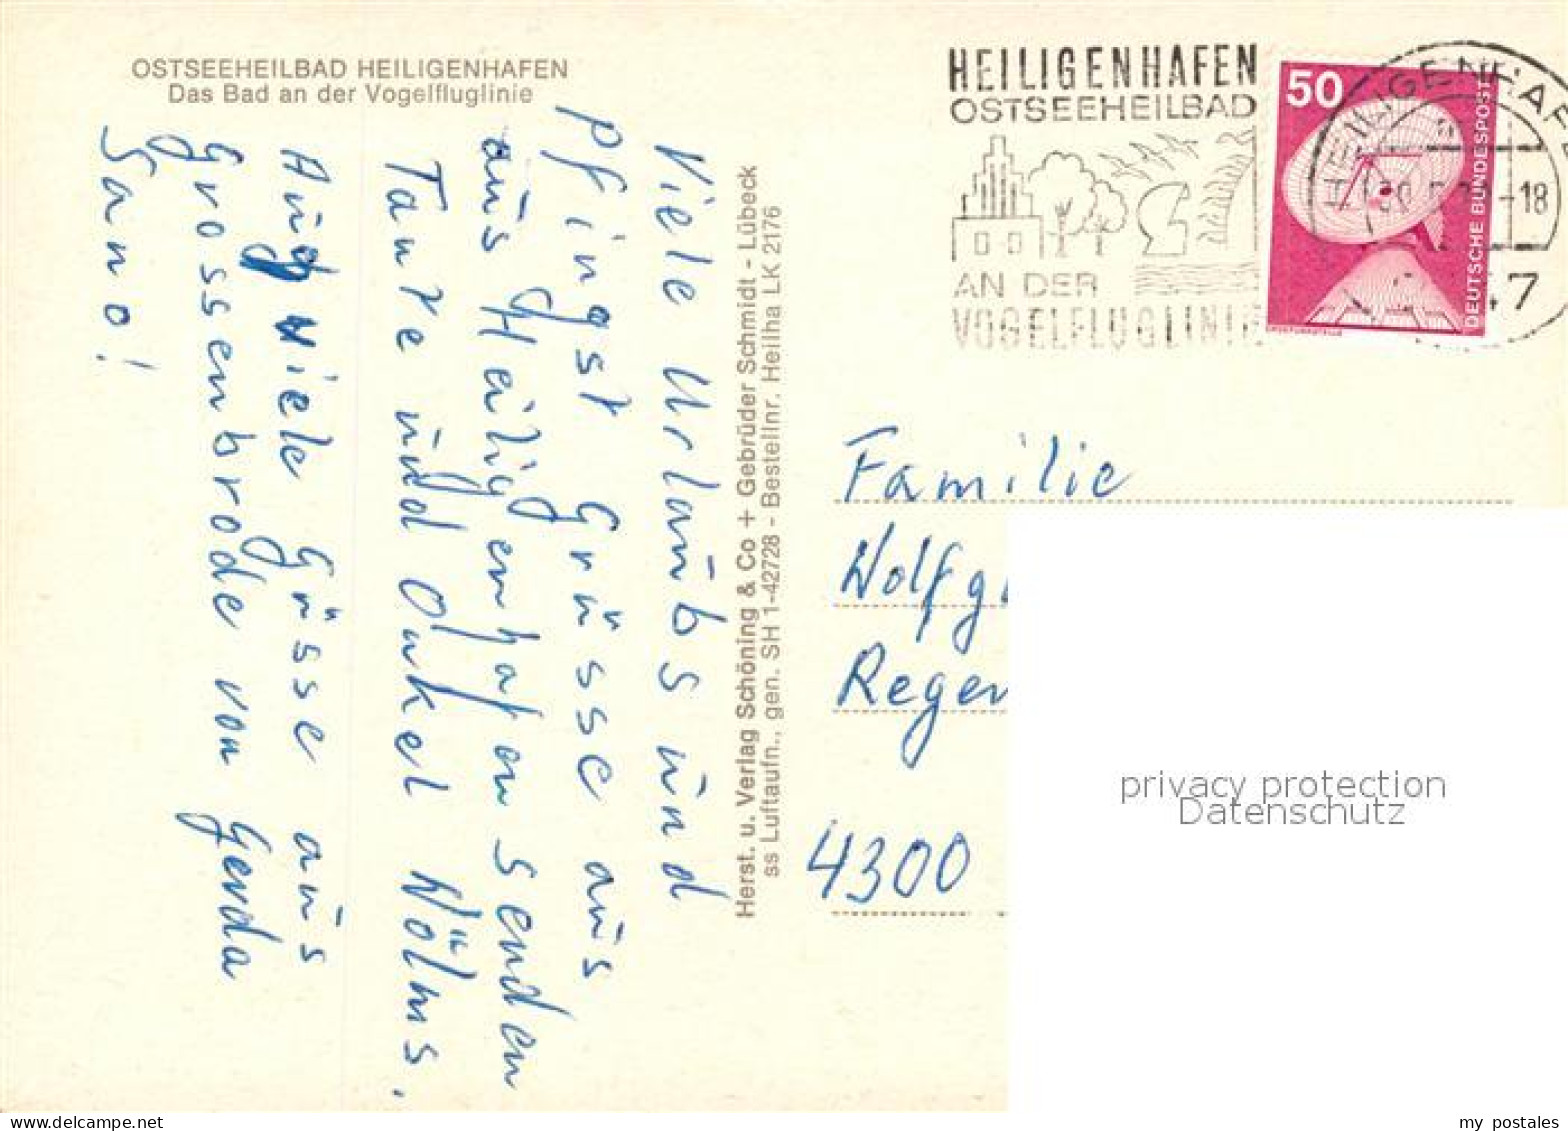 OSTSEEHEILBAD HEILIGENHAFEN
Das Bad an der Vogelfluglinie
Viele Urlaubs und
Pfingst Grüsse aus
aus Heiligenhafen senden
Tante und Onkel Nölms.
Auch Viele Grüsse aus
Grossenbrode von Gerda
Sano!
Herst. u. Verlag Schöning & Co + Gebrüder Schmidt - Lübeck
ss Luftaufn., gen. SH 1-42728 - Bestellnr. Heilha LK 2176
HEILIGENHAFEN
OSTSEEHEILBAD
AN DER
VOGELFLUGLINIE
50
DEUTSCHE BUNDESPOST
HEILIGENHAFE
-18
7
Familie
Wolfg
Regen
4300
privacy protection
Datenschutz
my postales